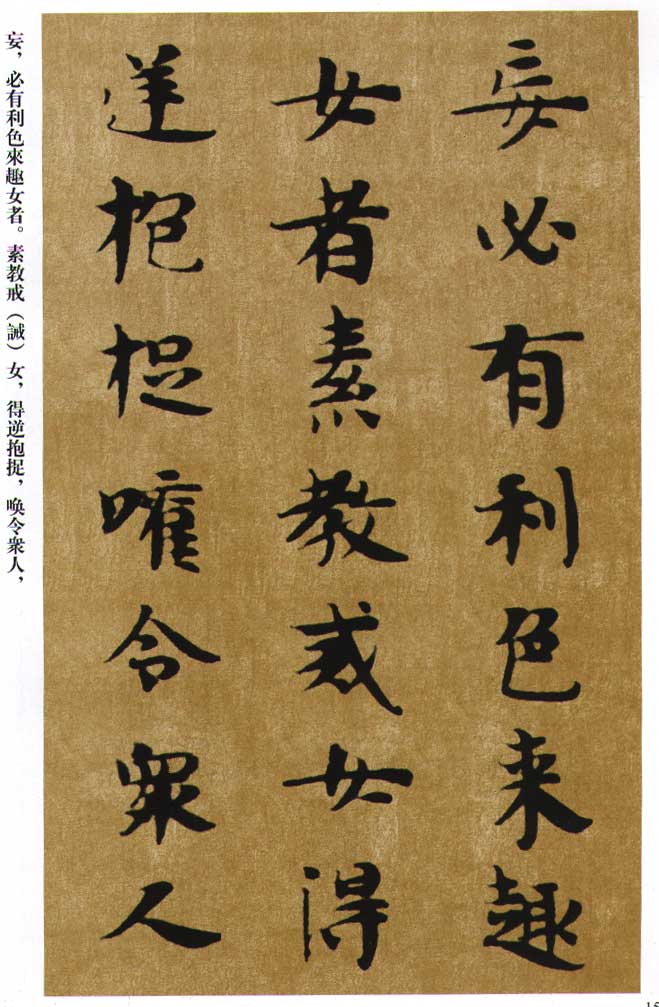 妄必有利色来趣
女者素教戒女得
逆抱捉嚾令衆人
妄，必有利色來趣女者。素教戒（誡）女，得逆抱捉，喚令衆人，